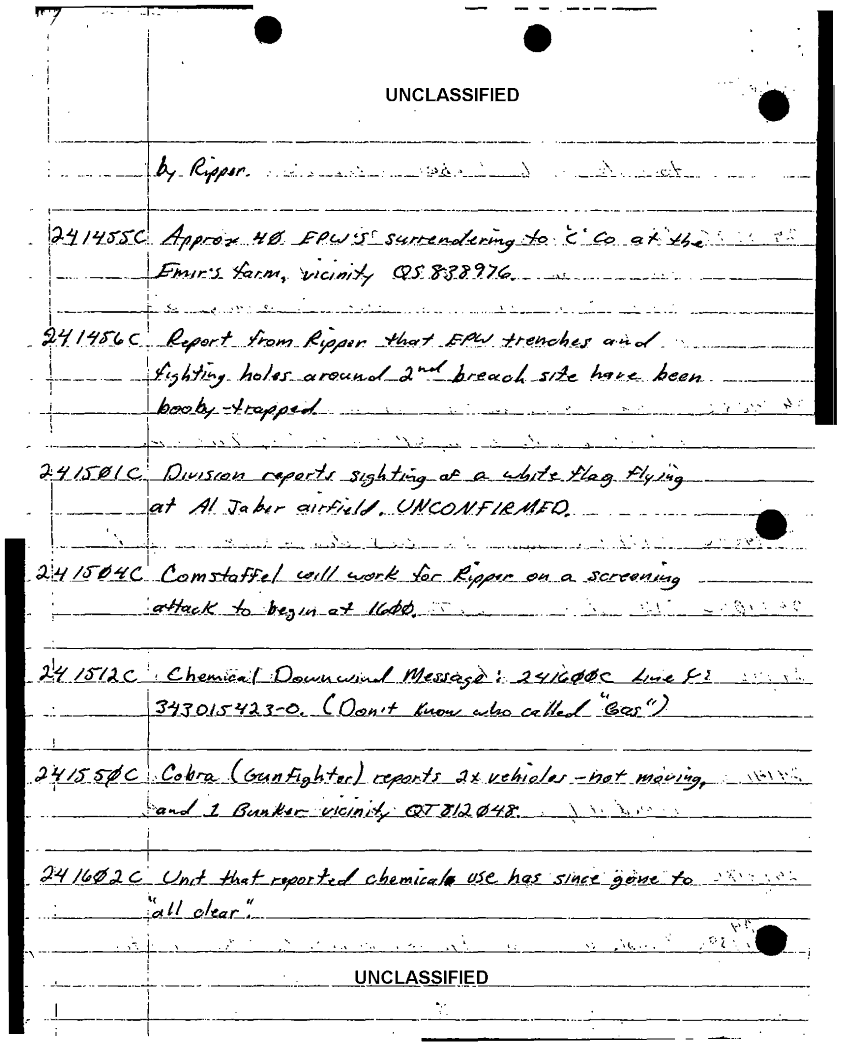 UNCLASSIFIED
by Ripper.
241455C Approx 4Ø EPW'S' surrendering to 'C' Co at the
Emir's farm, vicinity QS 838976.
241456C Report from Ripper that EPW trenches and
fighting holes around 2nd breach site have been
booby-trapped
2415Ø1C Division reports sighting of a white flag flying
at Al Jaber airfield. UNCONFIRMED.
2415Ø4C Comstaffel will work for Ripper on a screening
attack to begin at 16ØØ.
241512C Chemical Downwind Message: 2416ØØC Line
343015423-0. (Don't know who called "Gas")
24155ØC Cobra (Gunfighter) reports 2x vehicles - not moving,
and 1 Bunker vicinity QT 812Ø48.
2416Ø2C Unit that reported chemical use has since gone to
"all clear".
UNCLASSIFIED